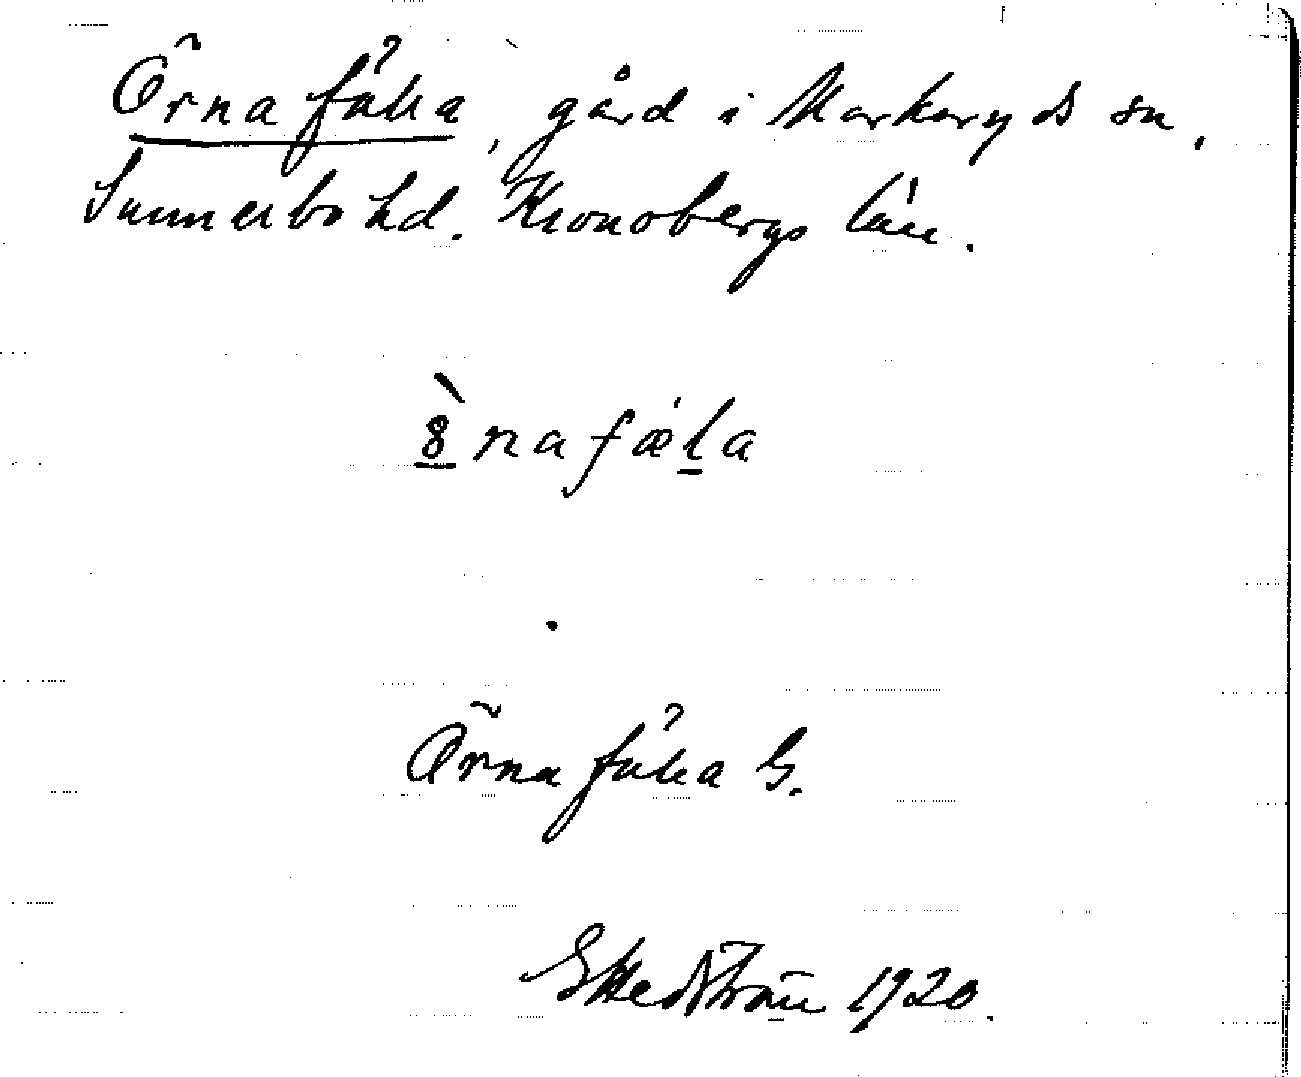 Örnafälla, gård i Markaryds sn,
Sunnerbo hd. Kronobergs län.
ònafæla
Örnafälla G.
G Hedström 1920.